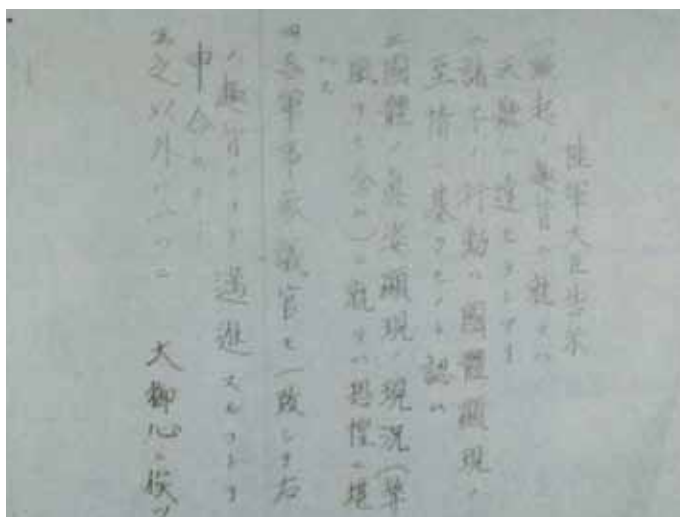 陸軍大臣告示
一蹶起ノ趣旨ニ就テハ
天聽ニ達セラレアリ
二諸子ノ行動ハ國體顯現ノ
至情ニ基クモノト認ム
三國體ノ眞姿顯現ノ現況(弊
風ヲモ含ム)ニ就テハ恐惶ニ堪
ヘス
四各軍事參議官モ一致シテ右
ノ趣旨ニヨリ邁進スルコトヲ
申合セタリ
五之以外ハ一ツニ 大御心ニ俟ツ